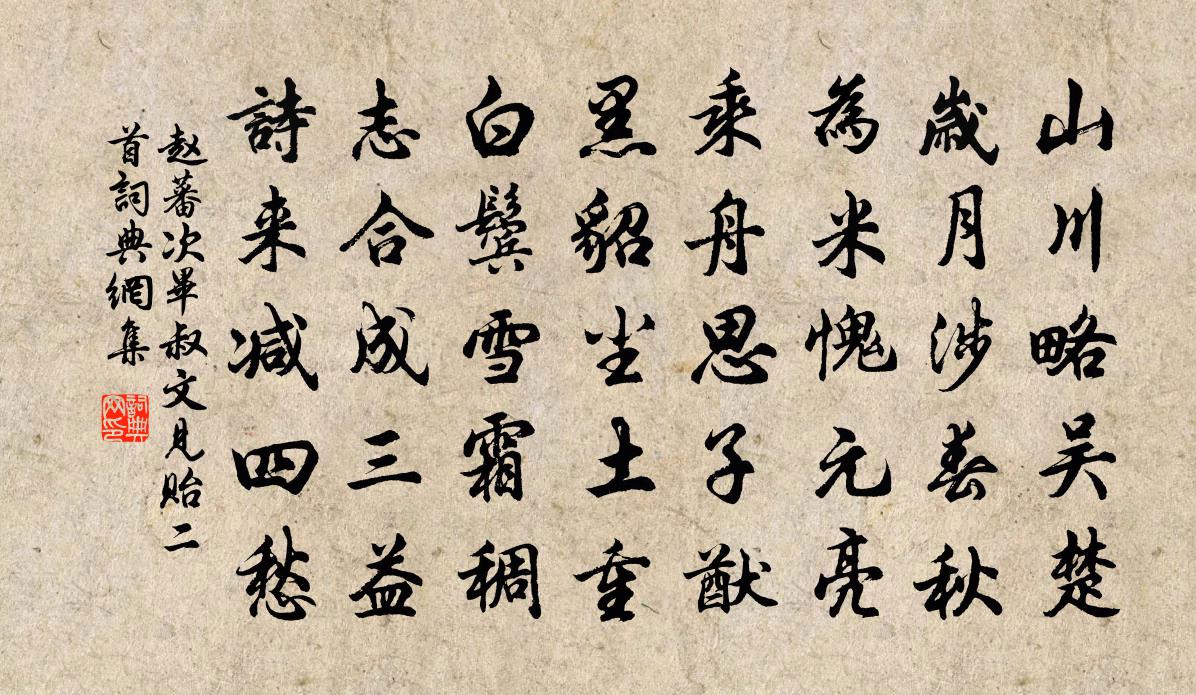 山川略吴楚
歳月涉春秋
為米愧元亮
乘舟思子猷
黑貂尘土重
白鬓雪霜稠
志合成三益
詩来减四愁
赵蕃次畢叔文見貽二
首詞典網集
詞典
网印